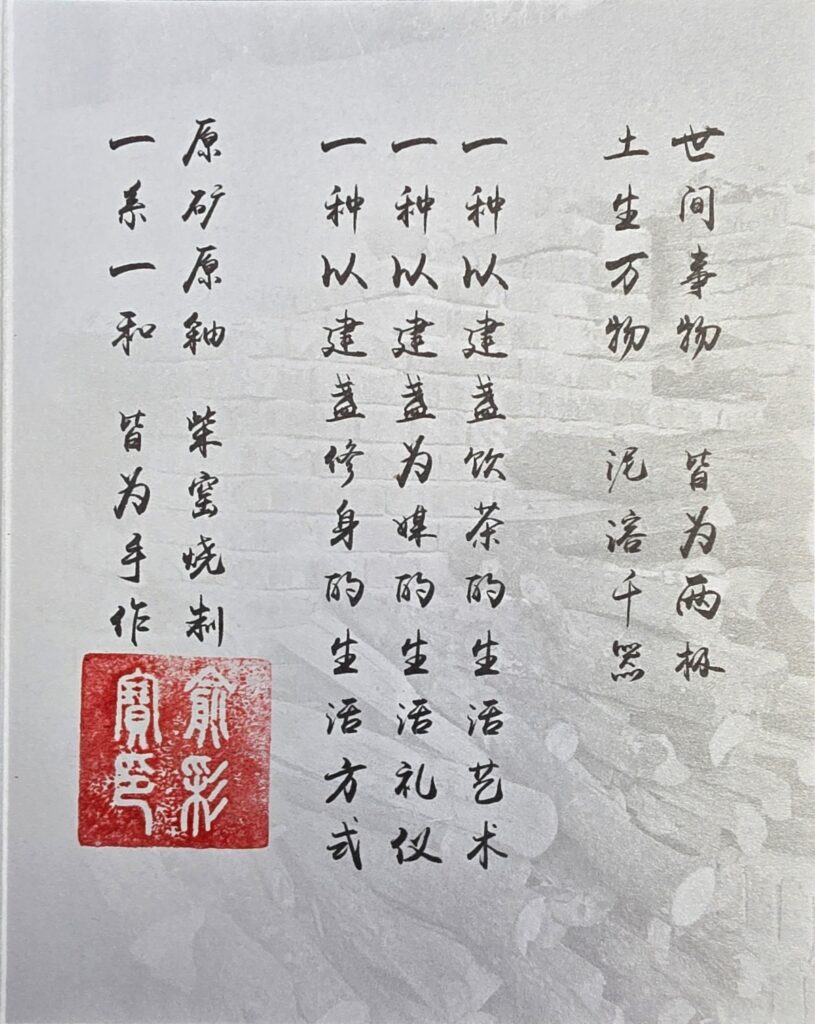 世间事物 皆为两杯
土生万物 泥溶千器
一种以建盏饮茶的生活艺术
一种以建盏为媒的生活礼仪
一种以建盏修身的生活方式
原矿原釉 柴窑烧制
一系一和 皆为手作
俞彩
寶印